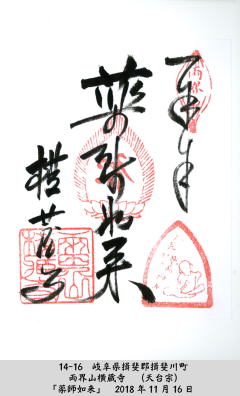 奉拝
薬師如来
横蔵寺
14-16 岐阜県揖斐郡揖斐川町
両界山横蔵寺 (天台宗)
「薬師如来」 2018年11月16日